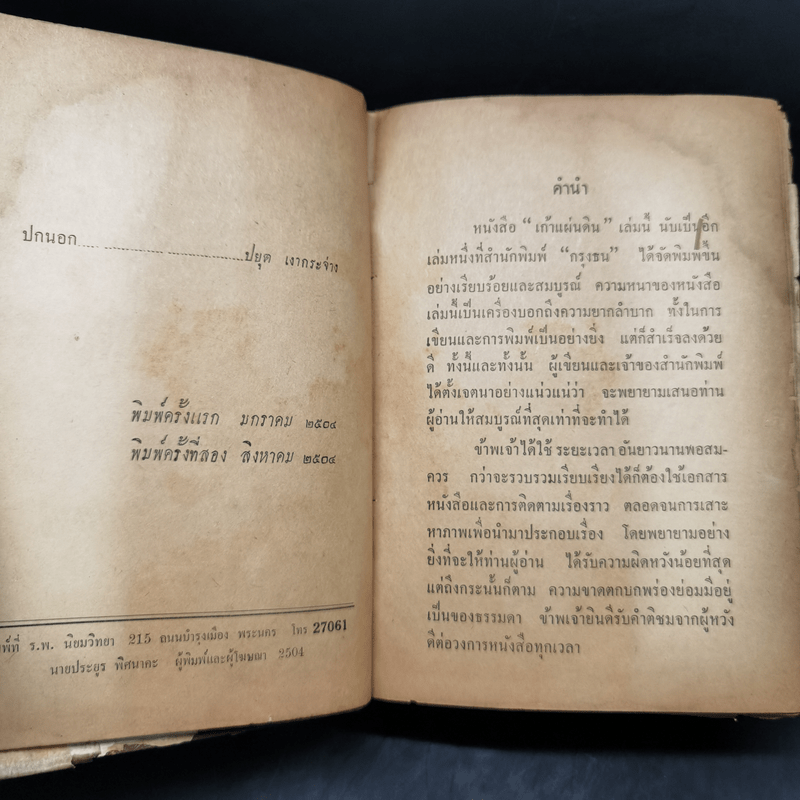 ปกนอก.......................................ปยุต เงากระจ่าง
พิมพ์ครั้งแรก มกราคม ๒๕๐๔
พิมพ์ครั้งที่สอง สิงหาคม ๒๕๐๔
พ์ที่ ร.พ. นิยมวิทยา 215 ถนนบำรุงเมือง พระนคร โทร 27061
นายประยูร พิศนาคะ ผู้พิมพ์และผู้โฆษณา 2504
คำนำ
หนังสือ “เก้าแผ่นดิน” เล่มนี้ นับเป็นอีก
เล่มหนึ่งที่สำนักพิมพ์ “กรุงธน” ได้จัดพิมพ์ขึ้น
อย่างเรียบร้อยและสมบูรณ์ ความหนาของหนังสือ
เล่มนี้เป็นเครื่องบอกถึงความยากลำบาก ทั้งในการ
เขียนและการพิมพ์เป็นอย่างยิ่ง แต่ก็สำเร็จลงด้วย
ดี ทั้งนี้และทั้งนั้น ผู้เขียนและเจ้าของสำนักพิมพ์
ได้ตั้งเจตนาอย่างแน่วแน่ว่า จะพยายามเสนอท่าน
ผู้อ่านให้สมบูรณ์ที่สุดเท่าที่จะทำได้
ข้าพเจ้าได้ใช้ ระยะเวลา อันยาวนานพอสม-
ควร กว่าจะรวบรวมเรียบเรียงได้ก็ต้องใช้เอกสาร
หนังสือและการติดตามเรื่องราว ตลอดจนการเสาะ
หาภาพเพื่อนำมาประกอบเรื่อง โดยพยายามอย่าง
ยิ่งที่จะให้ท่านผู้อ่าน ได้รับความผิดหวังน้อยที่สุด
แต่ถึงกระนั้นก็ตาม ความขาดตกบกพร่องย่อมมีอยู่
เป็นของธรรมดา ข้าพเจ้ายินดีรับคำติชมจากผู้หวัง
ดีต่อวงการหนังสือทุกเวลา